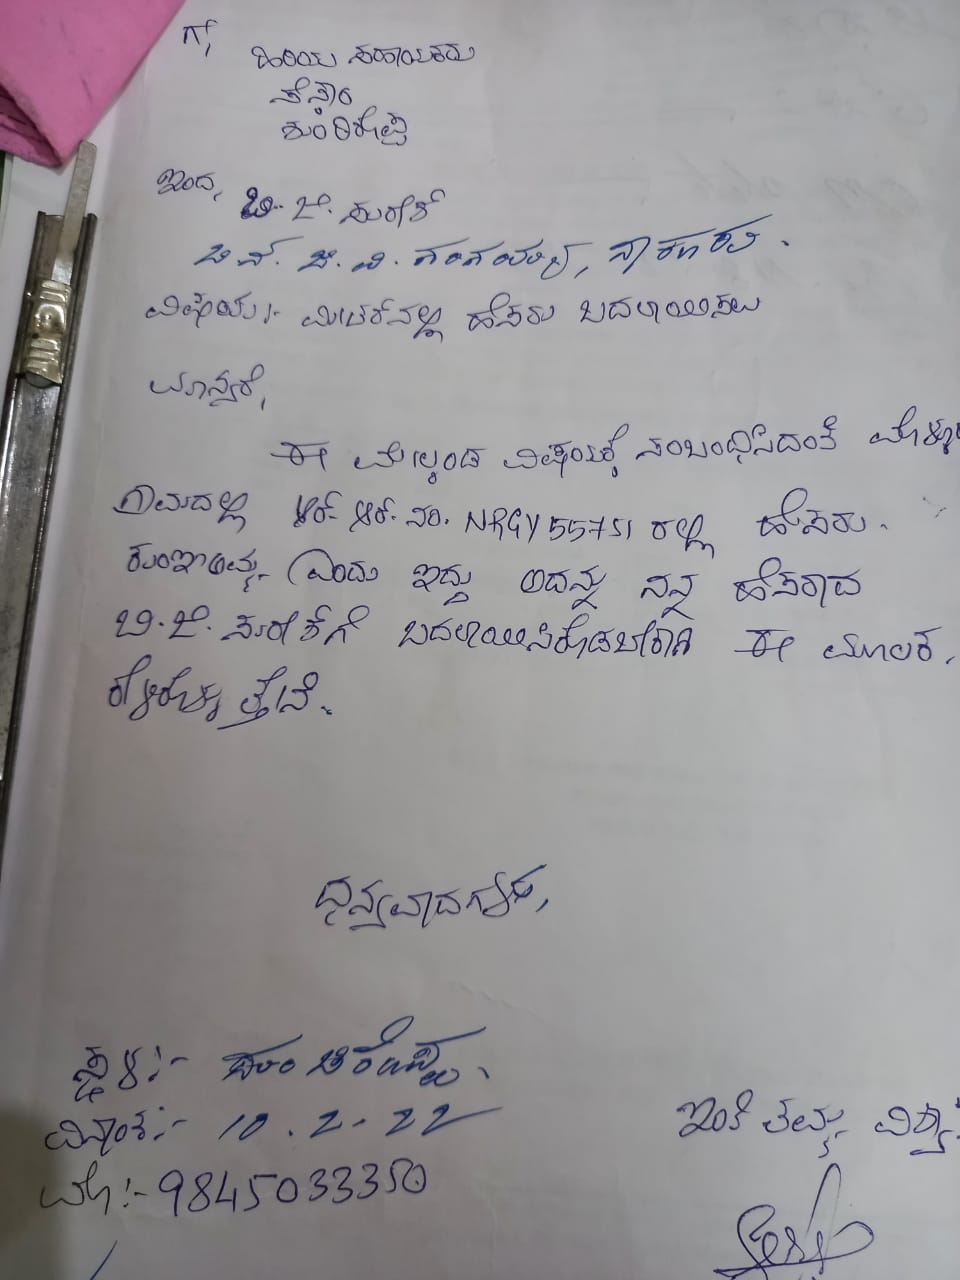 ಗೆ,
ಹಿರಿಯ ಸಹಾಯಕರು
ಸೆಸ್ಕಾಂ
ಇಂದ,
ಬಿ. ಜೆ. ಸುರೇಶ್
ವಿಷಯ:- ಮೀಟರ್‌ನಲ್ಲಿ ಹೆಸರು ಬದಲಾಯಿಸಲು
ಮಾನ್ಯರೆ,
ಈ ಮೇಲ್ಕಂಡ ವಿಷಯಕ್ಕೆ ಸಂಬಂಧಿಸಿದಂತೆ
ಗ್ರಾಮದಲ್ಲಿ ಆರ್. ಆರ್. ನಂ. NRGY55751 ರಲ್ಲಿ ಹೆಸರು.
ಎಂದು ಇದ್ದು ಅದನ್ನು ನನ್ನ ಹೆಸರಾದ
ಬಿ. ಜೆ. ಸುರೇಶ್‌ಗೆ ಬದಲಾಯಿಸಿಕೊಡಬೇಕಾಗಿ ಈ ಮೂಲಕ.
ಕೇಳಿಕೊಳ್ಳುತ್ತೇನೆ.
ಧನ್ಯವಾದಗಳು,
ಸ್ಥಳ:-
ದಿನಾಂಕ:- 10.2-22
ಮೊ:- 9845033350
ಇಂತಿ ತಮ್ಮ ವಿಶ್ವಾ